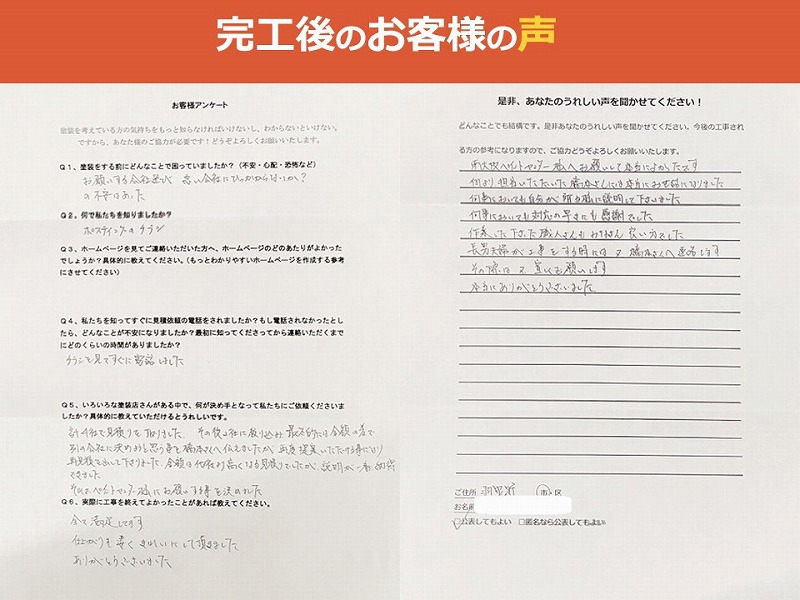 完工後のお客様の声
お客様アンケート
塗装を考えている方の気持ちをもっと知らなければいけないし、わからないといけない。
ですから、あなた様のご協力が必要です！どうぞよろしくお願いいたします。
Q1、塗装をする前にどんなことで困っていましたか？（不安・心配・恐怖など）
お願いする会社選び 悪い会社にひっかからないか？
の不安はあった
Q2。何で私たちを知りましたか？
ポスティングのチラシ
Q3、ホームページを見てご連絡いただいた方へ、ホームページのどのあたりがよかった
でしょうか？具体的に教えてください。（もっとわかりやすいホームページを作成する参考
にさせてください）
Q4、私たちを知ってすぐに見積依頼の電話をされましたか？もし電話されなかったとし
たら、どんなことが不安になりましたか？最初に知ってくださってから連絡いただくまで
にどのくらいの時間がありましたか？
チラシを見てすぐに電話しました
Q5、いろいろな塗装店さんがある中で、何が決め手となって私たちにご依頼くださいま
したか？具体的に教えていただけるとうれしいです。
計4社で見積りを取りました。その後2社に絞り込み最終的には金額の差で
別の会社に決めようと思う事を橋本さんへ伝えましたが 再度提案いただける事になり
再見積を出して下さりました。金額は他社より高くなる見積りでしたが、説明が一番
できました
Q6、実際に工事を終えてよかったことがあれば教えてください。
全て満足してます
仕上がりも凄くきれいにして頂きました
ありがとうございました
是非、あなたのうれしい声を聞かせてください！
どんなことでも結構です。是非あなたのうれしい声を聞かせてください。今後の工事され
る方の参考になりますので、ご協力どうぞよろしくお願いいたします。
へお願いして本当によかったです
何より担当いただいた橋本さんには本当にお世話になりました
何事においても 説明して下さいました
何事においても対応の早さにも感謝でした
作業いただいた職人さんもみなさん良い方でした
長男夫婦が工事をする時には又橋本さんへ連絡します
その際は又宜しくお願いします
本当にありがとうございました
ご住所 羽曳野 市・区
お名前
□公表してもよい □匿名なら公表してもよい